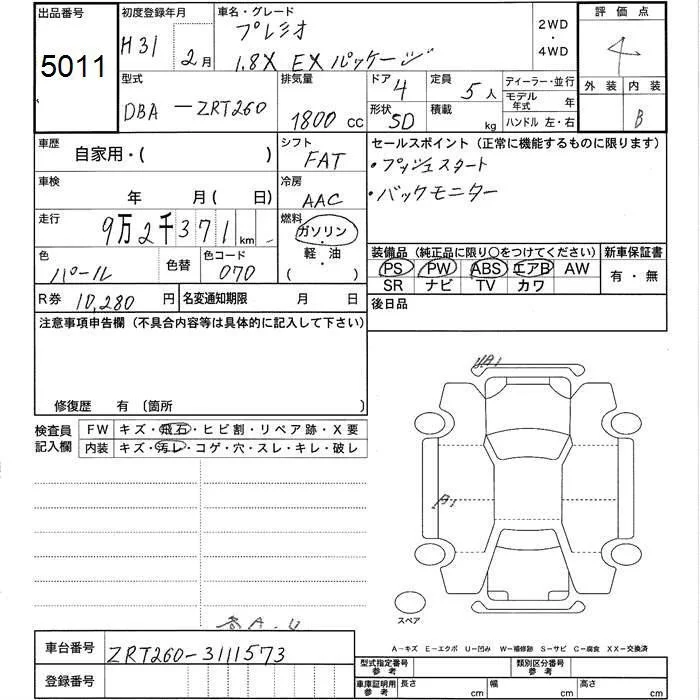 出品番号
5011
初度登録年月
H31 2月
車名・グレード
プレミオ
1.8X EXパッケージ
2WD
・
4WD
評価点
4
外装 内装
B
型式
DBA-ZRT260
排気量
1800 CC
ドア 4
形状 SD
定員 5人
積載 kg
ディーラー・並行
モデル年式 年
ハンドル 左・右
車歴 自家用・( )
シフト
FAT
セールスポイント(正常に機能するものに限ります)
・プッシュスタート
・バックモニター
車検 年 月( 日)
冷房
AAC
走行
9万2千371 km
燃料
ガソリン
・
軽・油
( )
色
パール
色替
色コード
070
装備品(純正品に限り○をつけてください)
PS PW ABS エアB AW
SR ナビ TV カワ
新車保証書
有・無
R券 10,280円
名変通知期限 月 日
後日品
注意事項申告欄(不具合内容等は具体的に記入して下さい)
修復歴 有(箇所 )
検査員
記入欄
FW キズ・飛石・ヒビ割・リペア跡・X要
内装 キズ・汚レ・コゲ・穴・スレ・キレ・破レ
A1
スペア
A.U
A-キズ E-エクボ U-凹み W-補修跡 S-サビ C-腐食 XX-交換済
車台番号 ZRT260-3111573
登録番号
型式指定番号
参考
類別区分番号
参考
車庫証明用
参考
長さ cm 幅 cm 高さ cm